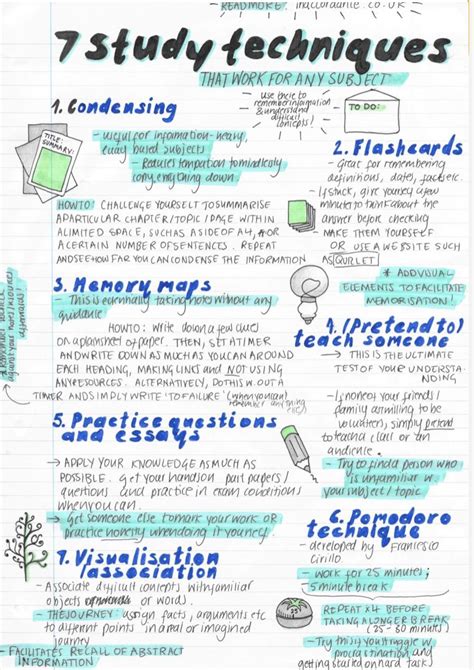 READ MORE: inaccordance.co.uk
7 study techniques
THAT WORK FOR ANY SUBJECT
use these to
remember information
& understand
difficult
concepts!
TO DO:
1. Condensing
TITLE:
SUMMARY:
- useful for information-heavy,
essay based subjects
- Reduces temptation to mindlessly
copy everything down.
HOW TO: CHALLENGE YOURSELF TO SUMMARISE
A PARTICULAR CHAPTER/TOPIC/PAGE WITHIN
A LIMITED SPACE, SUCH AS A SIDE OF A4, OR
A CERTAIN NUMBER OF SENTENCES. REPEAT
AND SEE HOW FAR YOU CAN CONDENSE THE INFORMATION
2. Flashcards
- Great for remembering
definitions, dates, facts etc.
- If stuck, give yourself a few
minutes to think about the
answer before checking
- MAKE THEM YOURSELF
OR USE A WEBSITE SUCH
AS QUIZLET
* ADD VISUAL
ELEMENTS TO FACILITATE
MEMORISATION!
3. Memory maps
- This is essentially taking notes without any
guidance
HOW TO: Write down a few clues
on a plain sheet of paper. Then, SET A TIMER
AND WRITE DOWN AS MUCH AS YOU CAN AROUND
EACH HEADING, MAKING LINKS AND NOT USING
ANY RESOURCES. ALTERNATIVELY, DO THIS W.OUT A
TIMER AND SIMPLY WRITE 'TO FAILURE' (when you can't
remember anything
else)
against your notes/resources
afterwards!
4. (Pretend to)
teach someone
→ THIS IS THE ULTIMATE
TEST OF YOUR UNDERSTA-
NDING
- If none of your friends/
family are willing to be
volunteers, simply pretend
to teach a class or an
audience.
- Try to find a person who
is unfamiliar w/
your subject/topic.
5. Practice questions
and essays
→ APPLY YOUR KNOWLEDGE AS MUCH AS
POSSIBLE. Get your hands on past papers/
questions and practice in exam conditions
when you can.
→ Get someone else to mark your work OR
practice honesty when doing it yourself
6. Pomodoro
technique
- developed by Francesco
Cirillo.
- WORK FOR 25 minutes;
5 minute break
REPEAT X4 BEFORE
TAKING A LONGER BREAK
- Try this if you struggle w/
procrastination and
getting started on a hard task.
7. Visualisation
/association
- Associate difficult concepts with familiar
objects or words.
- THE JOURNEY assign facts, arguments etc
to different points in a real or imagined
journey
- FACILITATES RECALL OF ABSTRACT
INFORMATION